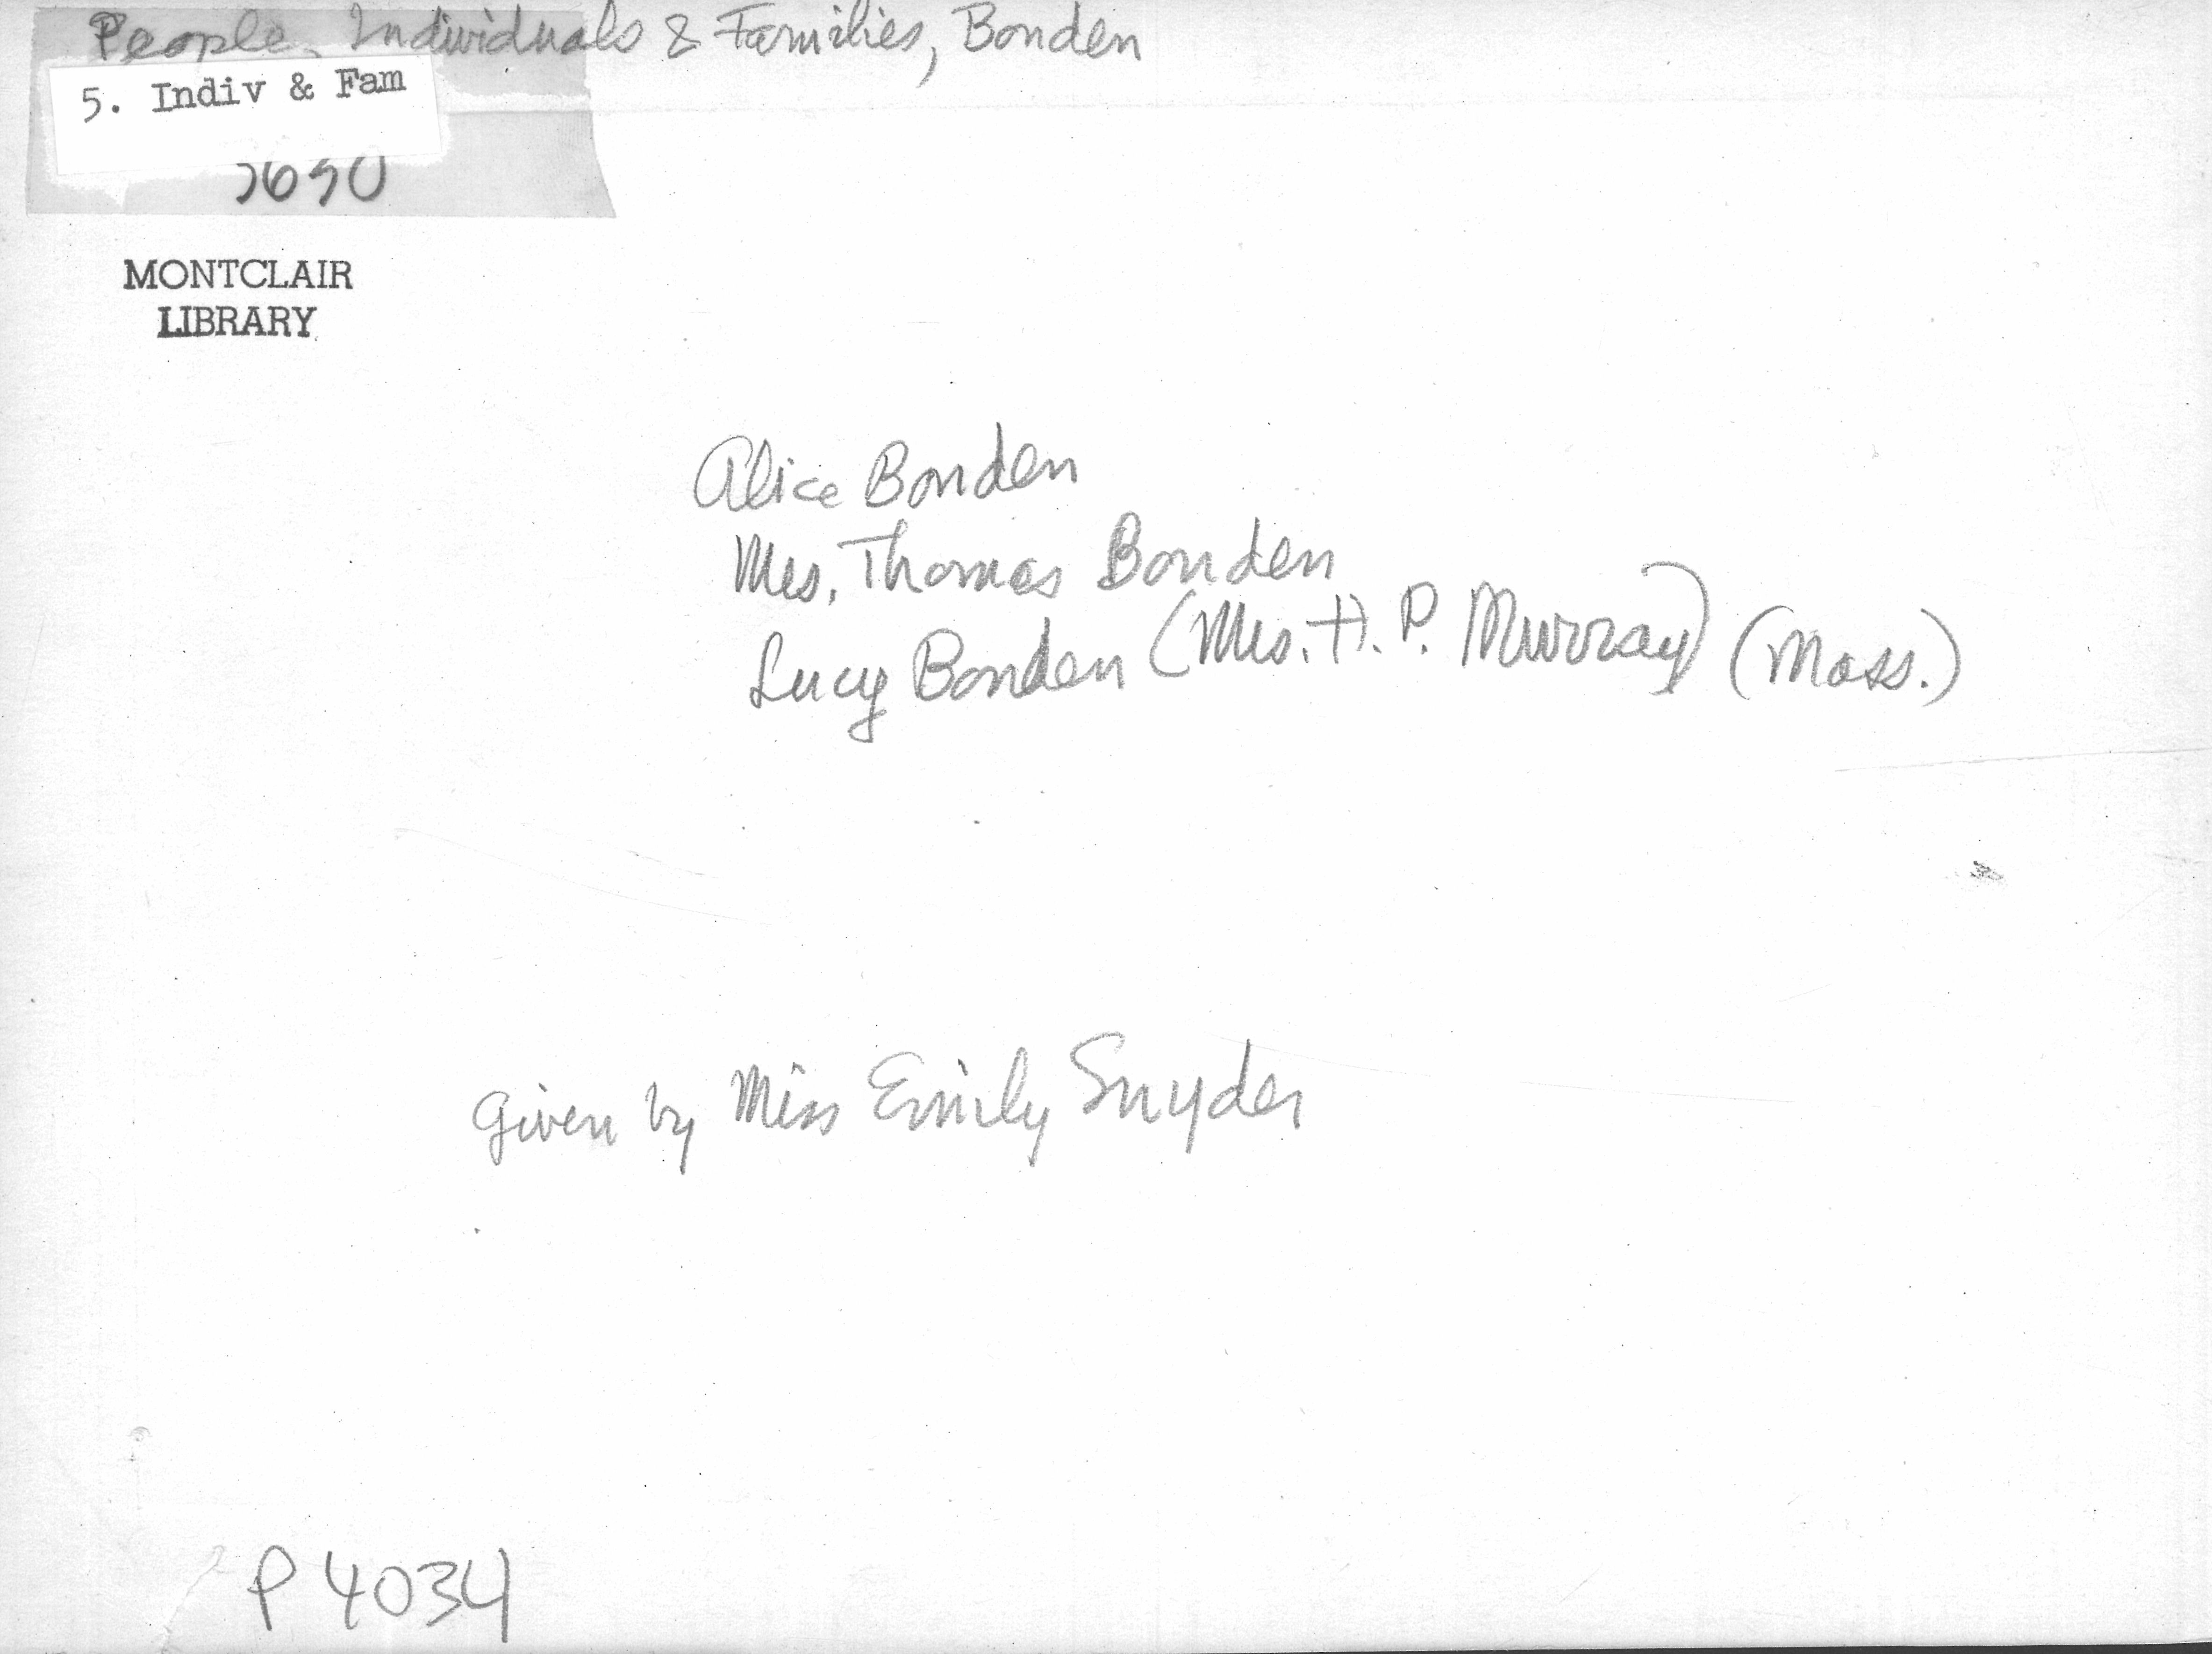 People, Individuals & Families, Bonden
5. Indiv & Fam
MONTCLAIR
LIBRARY
Alice Bonden
Mrs. Thomas Bonden
Lucy Bonden (Mrs. H. P. Murray) (Mass.)
Given by Miss Emily Snyder
P 4034